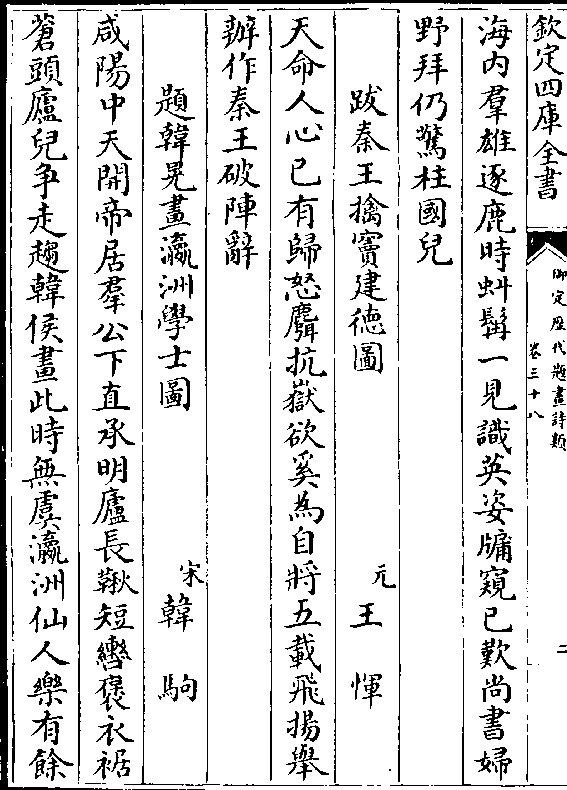 欽定四庫全書
御定歴代題畫詩類
卷三十八
二
海内羣雄逐鹿時虯髯一見識英姿牗窺已歎尚書婦
野拜仍驚柱國兒
跋秦王擒竇建徳圖
元王惲
天命人心已有歸怒麏抗嶽欲奚為自將五載飛揚舉
辦作秦王破陣辭
題韓晃畫瀛洲學士圖
宋韓駒
咸陽中天開帝居羣公下直承明廬長鞦短轡褒衣裾
蒼頭廬兒争走趨韓侯畫此時無虞瀛洲仙人樂有餘